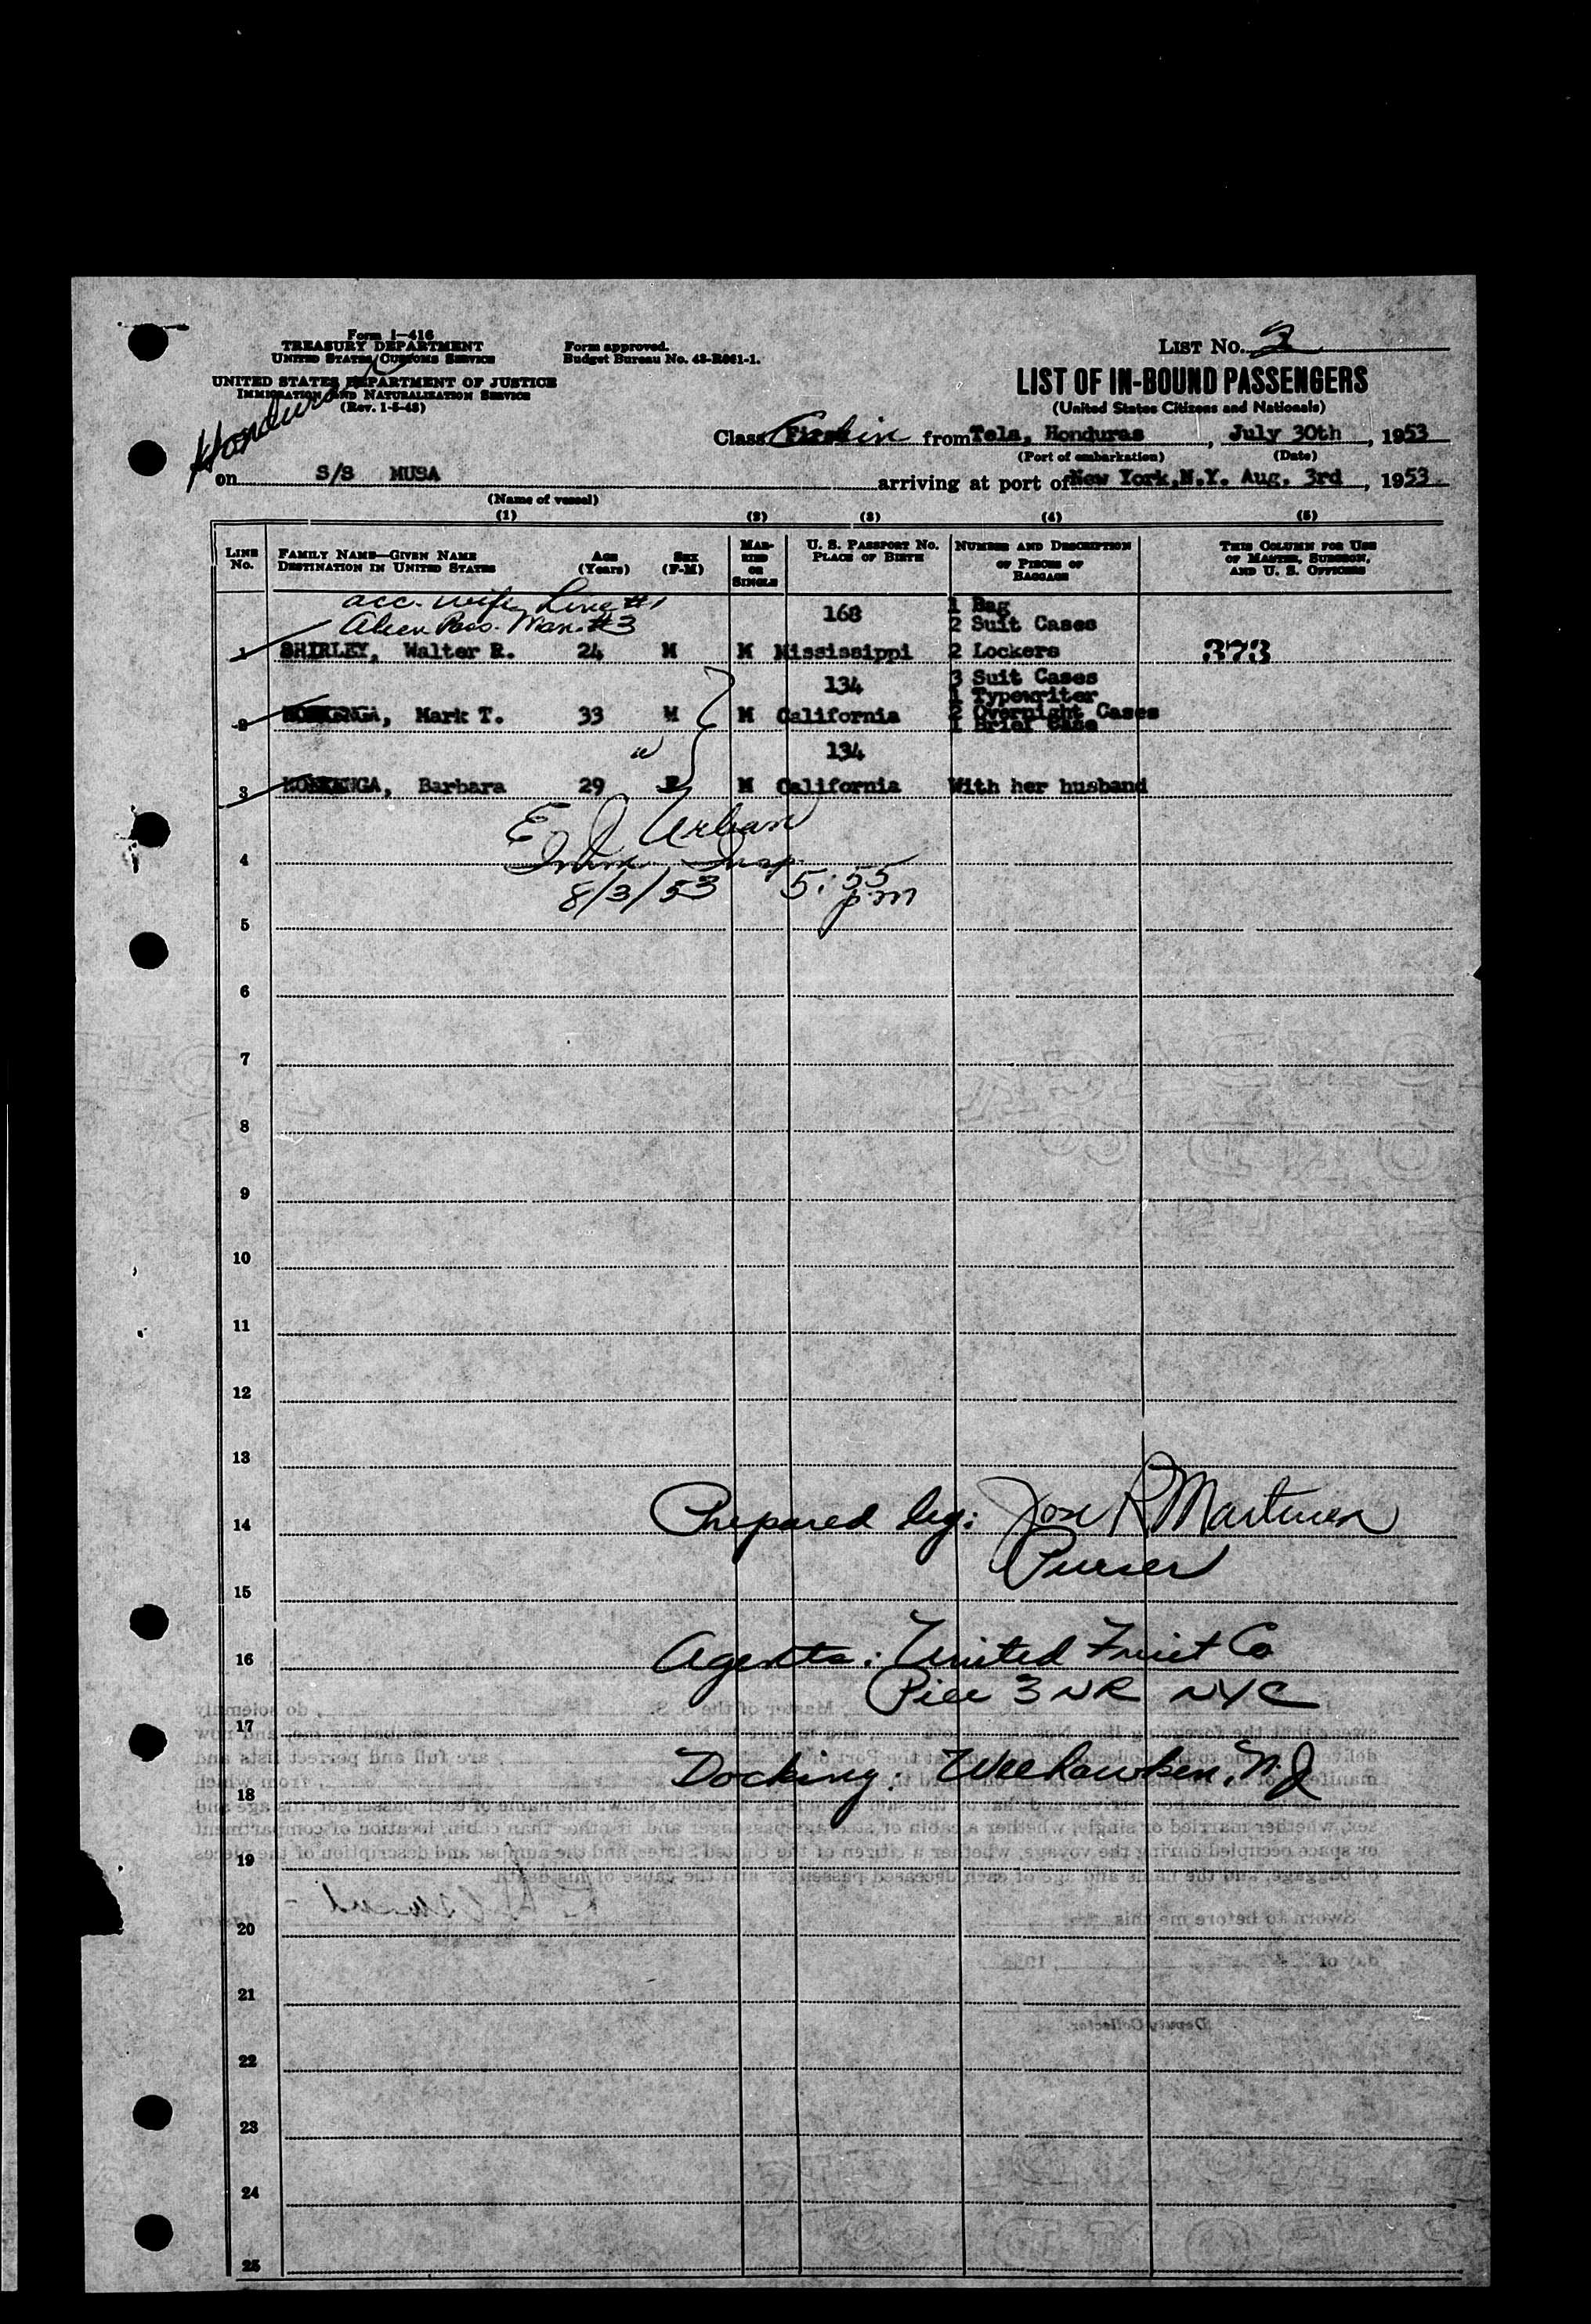 Form I-416
TREASURY DEPARTMENT
UNITED STATES CUSTOMS SERVICE
UNITED STATES DEPARTMENT OF JUSTICE
IMMIGRATION AND NATURALIZATION SERVICE
(Rev. 1-5-48)
Honduras
Form approved.
Budget Bureau No. 43-R061-1.
LIST No. 2
LIST OF IN-BOUND PASSENGERS
(United States Citizens and Nationals)
Class Cabin from Tela, Honduras, July 30th, 1953
(Port of embarkation) (Date)
on S/S MUSA arriving at port of New York, N.Y. Aug. 3rd, 1953.
(Name of vessel)
(1) (2) (3) (4) (5)
LINE No.
FAMILY NAME—GIVEN NAME
DESTINATION IN UNITED STATES
AGE (Years)
SEX (F-M)
MARRIED OR SINGLE
U. S. PASSPORT NO.
PLACE OF BIRTH
NUMBER AND DESCRIPTION OF PIECES OF BAGGAGE
THIS COLUMN FOR USE OF MASTER, SURGEON, AND U. S. OFFICERS
acc. wife, Line #1
Alien Pass. Man. #3
168 1 Bag
2 Suit Cases
1 SHIRLEY, Walter R. 24 M M Mississippi 2 Lockers 373
134 3 Suit Cases
1 Typewriter
2 Mark T. 33 M M California 2 Overnight Cases
1 Brief Case
134
3 Barbara 29 F M California With her husband
E J Urban
Imm. Insp.
4
8/3/53 5:55 pm
5
6
7
8
9
10
11
12
13
14 Prepared by: Jose R Martinez
Purser
15
16 Agents: United Fruit Co
Pier 3 NR NYC
17
18 Docking: Weehawken, N.J
19
20
21
22
23
24
25